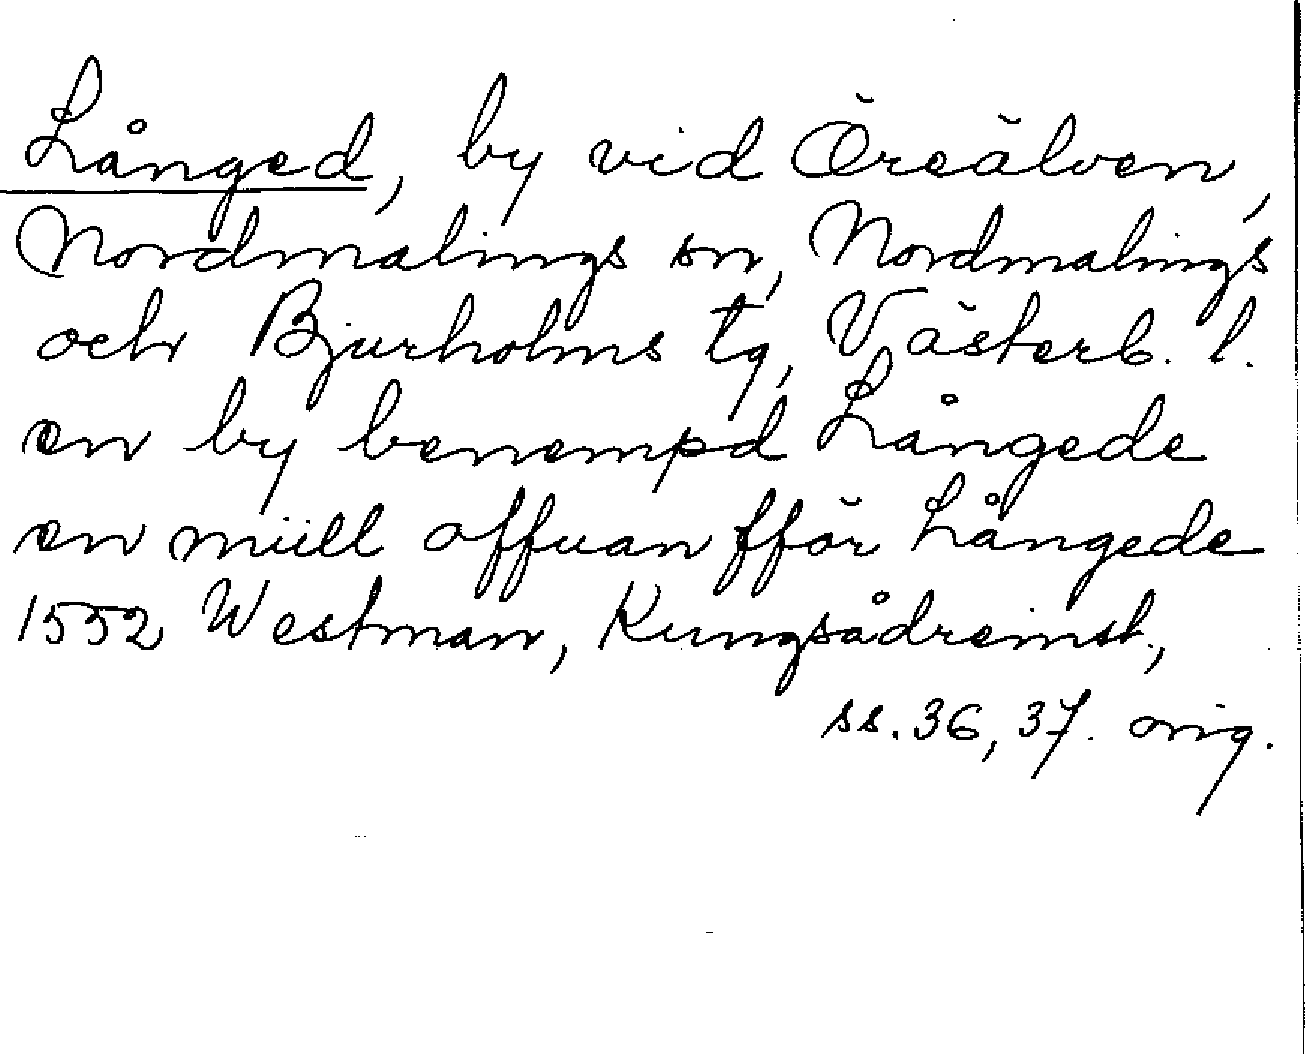 Långed, by vid Öreälven,
Nordmalings sn, Nordmalings
och Bjurholms tg, Västerb. l.
en by benempd Långede
en miill offuan fför Långede
1552 Westman, Kungsådreinst.,
ss. 36, 37. orig.